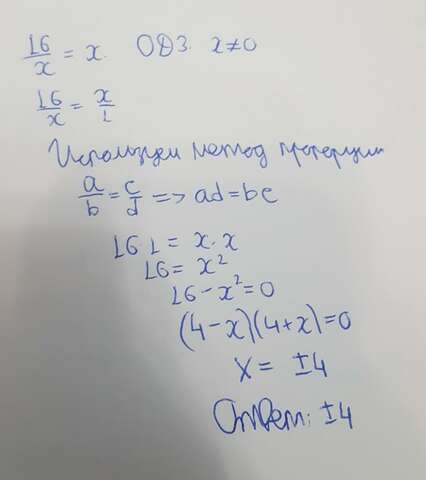 16/x = x. ОДЗ. x≠0
16/x = x/1
Используем метод пропорции
a/b = c/d => ad = bc
16·1 = x·x
16 = x²
16 - x² = 0
(4-x)(4+x)=0
x = ±4
Ответ: ±4